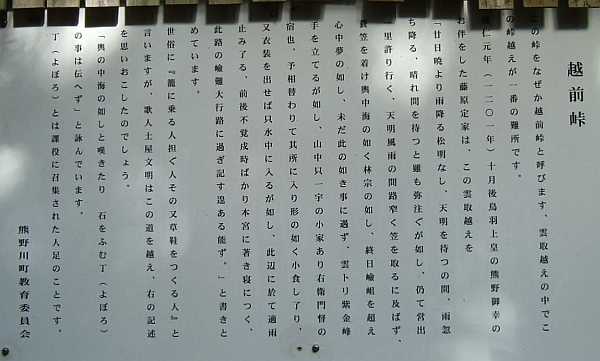 越前峠
この峠をなぜか越前峠と呼びます、雲取越えの中でこ
の峠越えが一番の難所です。
建仁元年（一二〇一年）十月後鳥羽上皇の熊野御幸の
お伴をした藤原定家は、この雲取越えを
「廿日暁より雨降る松明なし、天明を待つの間、雨忽
ち降る、晴れ間を待つと雖も弥注ぐが如し、仍て営出
一里許り行く、天明風雨の間路窄く笠を取るに及ばず、
蓑笠を着け輿中海の如く林宗の如し、終日嶮岨を超え
心中夢の如し、未だ此の如き事に過ず、雲トリ紫金峰
手を立てるが如し、山中只一宇の小家あり右衛門督の
宿也、予相替わりて其所に入り形の如く小食し了り、
又衣装を出せば只水中に入るが如し、此辺に於て適雨
止み了る、前後不覚戌時ばかり本宮に著き寝につく、
此路の嶮難大行路に過ぎ記す遑ある能ず。」と書きと
めています。
世俗に『籠に乗る人担ぐ人その又草鞋をつくる人』と
言いますが、歌人土屋文明はこの道を越え、右の記述
を思いおこしたのでしょう。
「輿の中海の如しと嘆きたり　石をふむ丁（よぼろ）
の事は伝へず」と詠んでいます。
丁（よぼろ）とは課役に召集された人足のことです。
熊野川町教育委員会